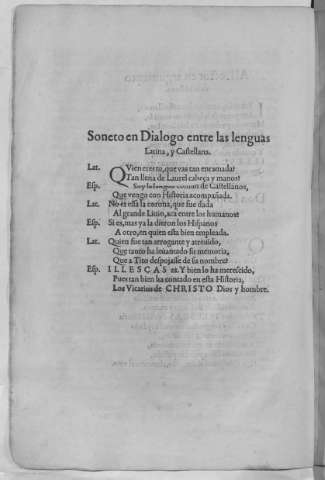 Soneto en Dialogo entre las lenguas
Latina, y Castellana.
Lat. QVien eres tu, que vas tan encarnada?
Tan llena de Laurel cabeça y manos?
Esp. Soy la lengua comun de Castellanos,
Que vengo con Historia acompañada.
Lat. No es essa la corona, que fue dada
Al grande Liuio, aca entre los humanos?
Esp. Si es, mas ya la dieron los Hispanos
A otro, en quien esta bien empleada.
Lat. Quien fue tan arrogante y atreuido,
Que tanto ha leuantado su memoria,
Que a Tito despojasse de su nombre?
Esp. ILLESCAS es. Y bien lo ha merescido,
Pues tan bien ha contado en esta Historia,
Los Vicarios de CHRISTO Dios y hombre.